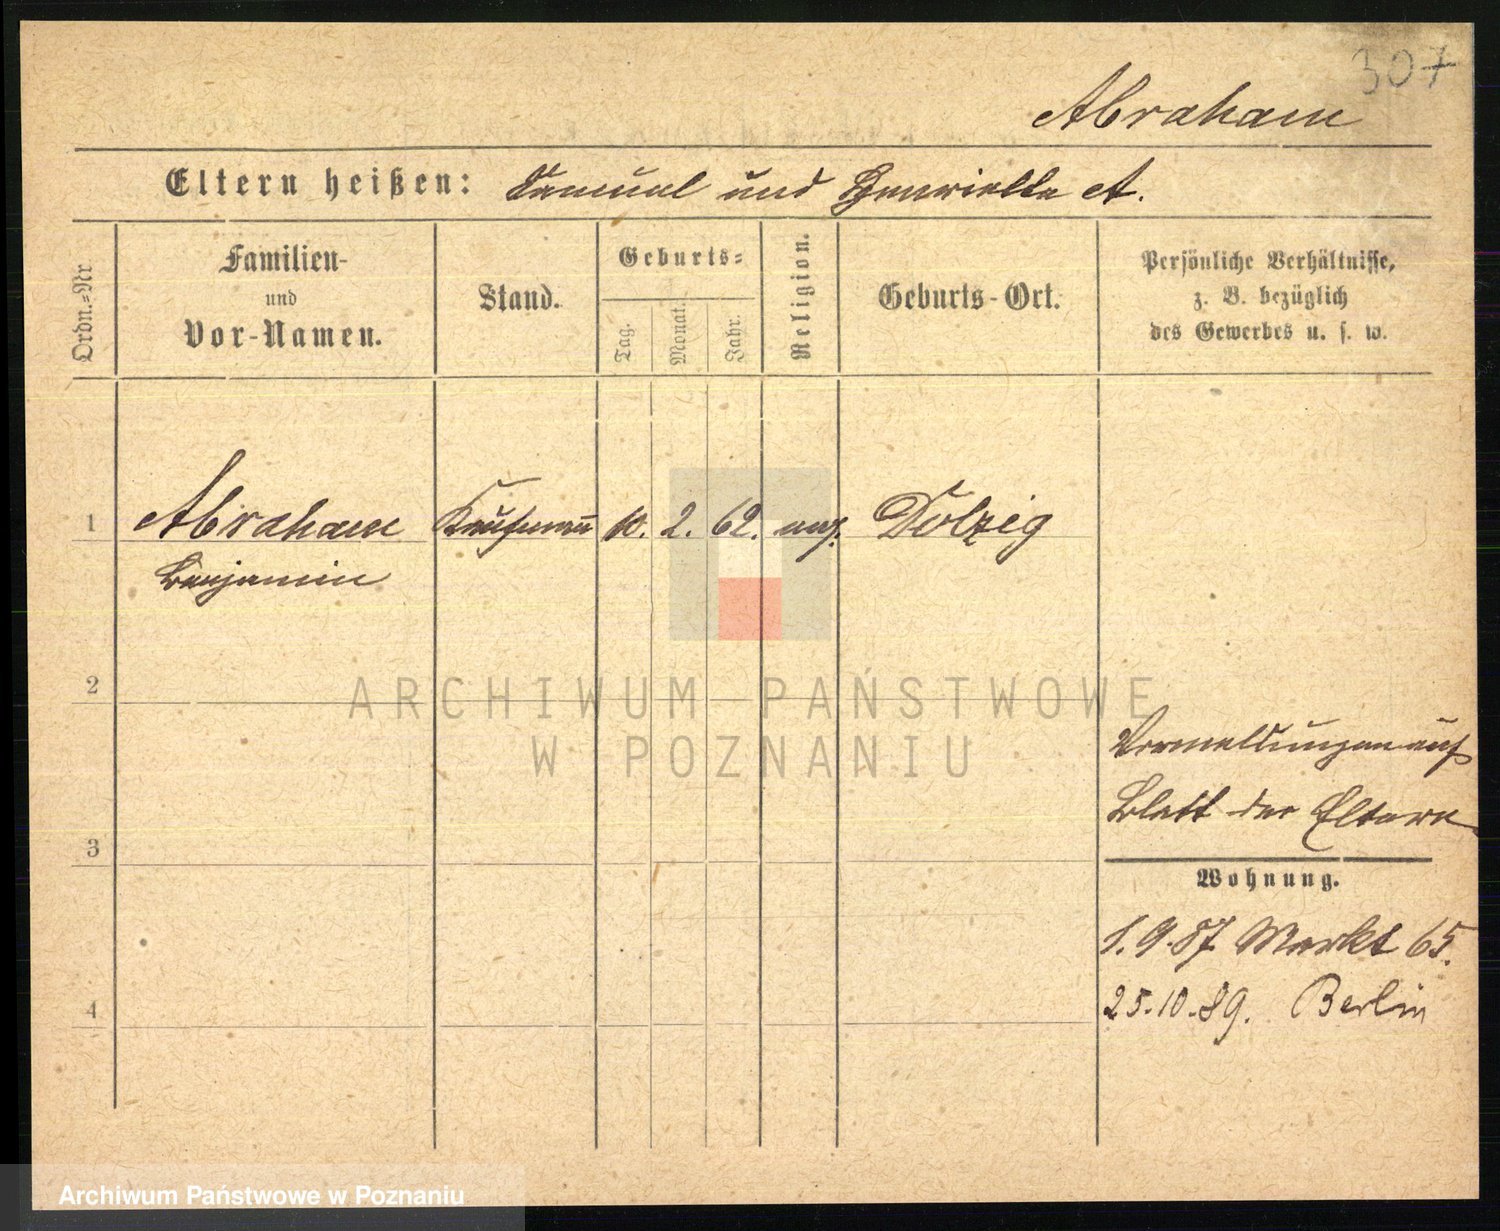 307
Abraham
Eltern heißen: Samuel und Henriette A.
Ordn.-Nr.
Familien-
und
Vor-Namen.
Stand.
Geburts-
Tag.
Monat.
Jahr.
Religion.
Geburts-Ort.
Persönliche Verhältnisse,
z. B. bezüglich
des Gewerbes u. s. w.
1 Abraham Kaufmann 10. 2. 62. mos. Dolzig
Benjamin
2
ARCHIWUM PAŃSTWOWE
W POZNANIU
Vermeldungen auf
Blatt der Eltern
3
Wohnung.
1.9.87 Markt 65.
25.10.89. Berlin
4
Archiwum Państwowe w Poznaniu